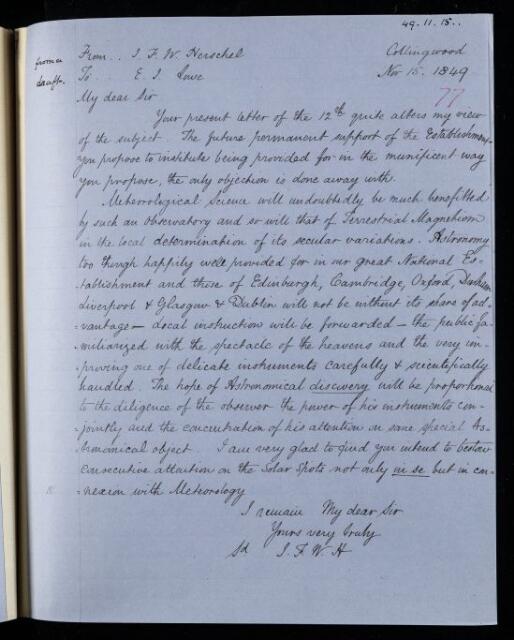 49.11.15..
from a draft.
From.. J. F. W. Herschel
Collingwood
To.. E. J. Lowe
Nov 15. 1849
77
My dear Sir
Your present letter of the 12th quite alters my view
of the subject. The future permanent support of the Establishment
you propose to institute being provided for in the munificent way
you propose, the only objection is done away with.
Meteorological Science will undoubtedly be much benefitted
by such an Observatory and so will that of Terrestrial Magnetism
in the local determination of its secular variations. Astronomy
too though happily well provided for in our great National Es-
-tablishment and those of Edinburgh, Cambridge, Oxford, Durham
Liverpool & Glasgow & Dublin will not be without its share of ad-
-vantage — Local instruction will be forwarded — the public fa-
-miliarized with the spectacle of the heavens and the very im-
-proving one of delicate instruments carefully & scientifically
handled. The hope of Astronomical discovery will be proportional
to the diligence of the observer the power of his instruments con-
-jointly and the concentration of his attention on some special As-
-tronomical object. I am very glad to find you intend to bestow
consecutive attention on the Solar Spots not only in se but in con-
-nexion with Meteorology
I remain My dear Sir
Yours very truly
Sd J. F. W. H